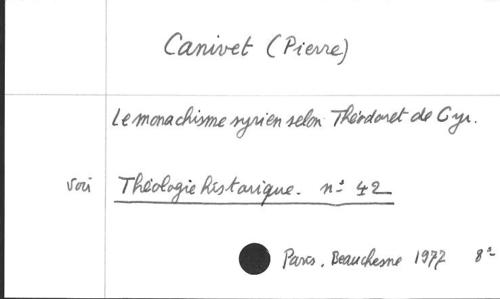 Canivet (Pierre)
Le monachisme syrien selon Théodoret de Cyr.
voir Théologie historique. n° 42
Paris. Beauchesne 1977 8°